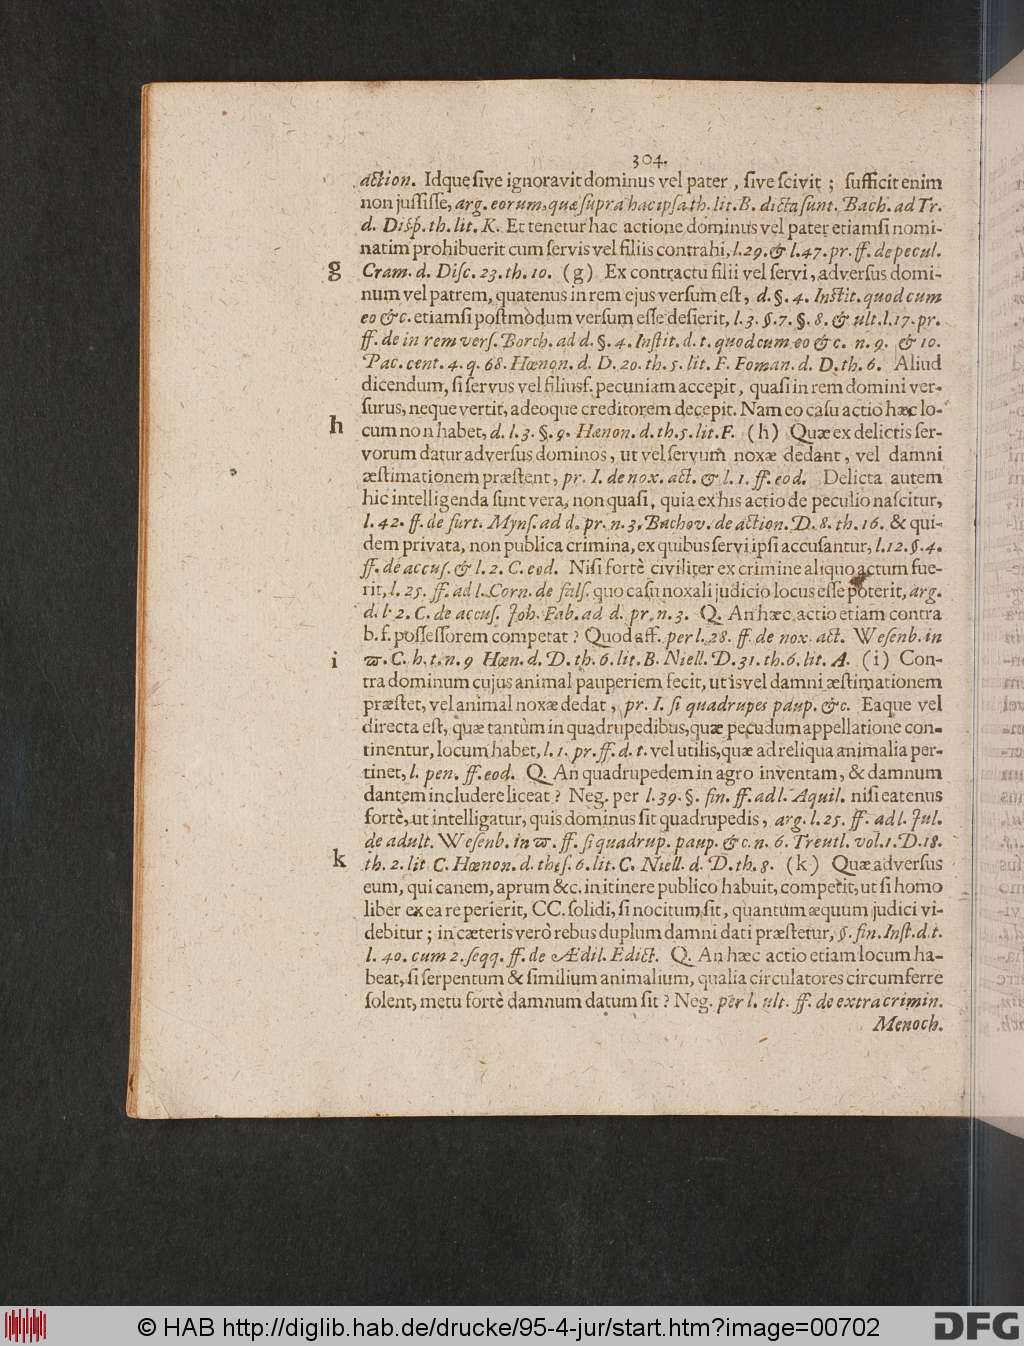 304.
action. Idque ſive ignoravit dominus vel pater, ſive ſcivit; ſufficit enim
non juſſiſſe, arg. eorum, quæ ſupra hac ipſa th. lit. B. dicta ſunt. Bach. ad Tr.
d. Diſp. th. lit. K. Et tenetur hac actione dominus vel pater etiamſi nomi-
natim prohibuerit cum ſervis vel filiis contrahi, l. 29. & l. 47. pr. ff. de pecul.
g Cram. d. Diſc. 23. th. 10. (g) Ex contractu filii vel ſervi, adverſus domi-
num vel patrem, quatenus in rem ejus verſum eſt, d. §. 4. Inſtit. quod cum
eo &c. etiamſi poſtmòdum verſum eſſe deſierit, l. 3. §. 7. §. 8. & ult. l. 17. pr.
ff. de in rem verſ. Borch. ad d. §. 4. Inſtit. d. t. quod cum eo & c. n. 9. & 10.
Pac. cent. 4. q. 68. Hœnon. d. D. 20. th. 5. lit. F. Foman. d. D. th. 6. Aliud
dicendum, ſi ſervus vel filiusf. pecuniam accepit, quaſi in rem domini ver-
ſurus, neque vertit, adeoque creditorem decepit. Nam eo caſu actio hæc lo-
h cum non habet, d. l. 3. §. 9. Hœnon. d. th. 5. lit. F. (h) Quæ ex delictis ſer-
vorum datur adverſus dominos, ut vel ſervum noxæ dedant, vel damni
æſtimationem præſtent, pr. I. de nox. act. & l. 1. ff. eod. Delicta autem
hic intelligenda ſunt vera, non quaſi, quia ex his actio de peculio naſcitur,
l. 42. ff. de furt. Mynſ. ad d. pr. n. 3. Bachov. de action. D. 8. th. 16. & qui-
dem privata, non publica crimina, ex quibus ſervi ipſi accuſantur, l. 12. §. 4.
ff. de accuſ. & l. 2. C. eod. Niſi fortè civiliter ex crimine aliquo actum fue-
rit, l. 25. ff. ad l. Corn. de falſ. quo caſu noxali judicio locus eſſe poterit, arg.
d. l. 2. C. de accuſ. Joh. Fab. ad d. pr. n. 3. Q. An hæc actio etiam contra
b. f. poſſeſſorem competat? Quod aff. per l. 28. ff. de nox. act. Weſenb. in
i ϖ. C. h. t. n. 9 Hœn. d. D. th. 6. lit. B. Niell. D. 31. th. 6. lit. A. (i) Con-
tra dominum cujus animal pauperiem fecit, ut is vel damni æſtimationem
præſtet, vel animal noxæ dedat, pr. I. ſi quadrupes paup. &c. Eaque vel
directa eſt, quæ tantùm in quadrupedibus, quæ pecudum appellatione con-
tinentur, locum habet, l. 1. pr. ff. d. t. vel utilis, quæ ad reliqua animalia per-
tinet, l. pen. ff. eod. Q. An quadrupedem in agro inventam, & damnum
dantem includere liceat? Neg. per l. 39. §. fin. ff. ad l. Aquil. niſi eatenus
fortè, ut intelligatur, quis dominus ſit quadrupedis, arg. l. 25. ff. ad l. Jul.
de adult. Weſenb. in ϖ. ff. ſi quadrup. paup. & c. n. 6. Treutl. vol. 1. D. 18.
k th. 2. lit C. Hœnon. d. theſ. 6. lit. C. Niell. d. D. th. 8. (k) Quæ adverſus
eum, qui canem, aprum &c. in itinere publico habuit, competit, ut ſi homo
liber ex ea re perierit, CC. ſolidi, ſi nocitum ſit, quantum æquum judici vi-
debitur; in cæteris verò rebus duplum damni dati præſtetur, §. fin. Inſt. d. t.
l. 40. cum 2. ſeqq. ff. de Ædil. Edict. Q. An hæc actio etiam locum ha-
beat, ſi ſerpentum & ſimilium animalium, qualia circulatores circumferre
ſolent, metu fortè damnum datum ſit? Neg. per l. ult. ff. de extra crimin.
Menoch.
© HAB http://diglib.hab.de/drucke/95-4-jur/start.htm?image=00702
DFG